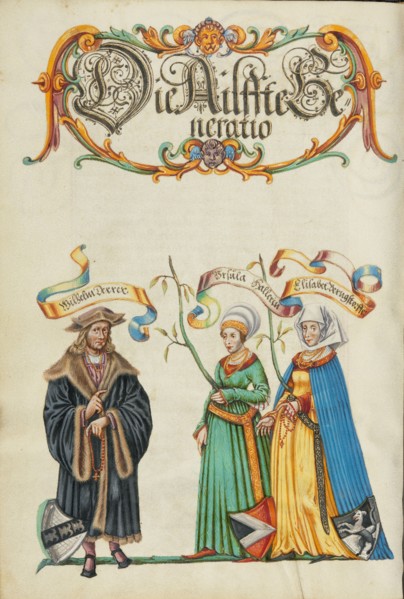 Die Ailffte Ge=
neratio
Wilhelm Derrer
Ursula Hallerin
Elisabet